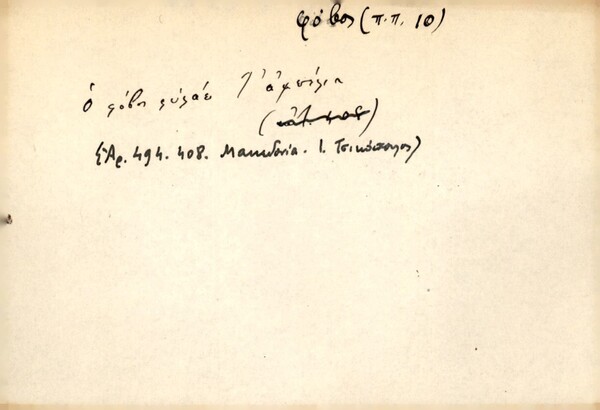 φόβος (π.π. 10)
ὁ φόβος φυλάει τ' ἀμπέλια
Ἀρ. 494. 408. Μακεδονία. Ι. Τσικόπουλος)